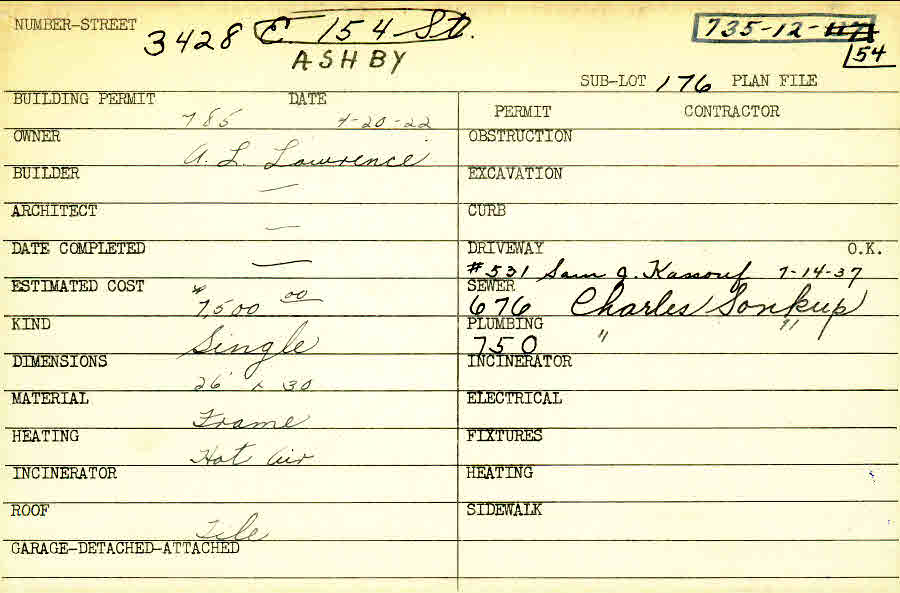 NUMBER-STREET 3428 E. 154 St. 735-12-117
ASHBY 54
SUB-LOT 176 PLAN FILE
BUILDING PERMIT DATE
785 4-20-22
PERMIT CONTRACTOR
OWNER A. L. Lawrence
OBSTRUCTION
BUILDER —
EXCAVATION
ARCHITECT —
CURB
DATE COMPLETED —
DRIVEWAY O.K.
#531 Sam J. Kassouf 7-14-37
ESTIMATED COST $7,500 00
SEWER
676 Charles Sonkup
KIND Single
PLUMBING
750 " "
DIMENSIONS 26' x 30
INCINERATOR
MATERIAL Frame
ELECTRICAL
HEATING Hot Air
FIXTURES
INCINERATOR
HEATING
ROOF Tile
SIDEWALK
GARAGE-DETACHED-ATTACHED